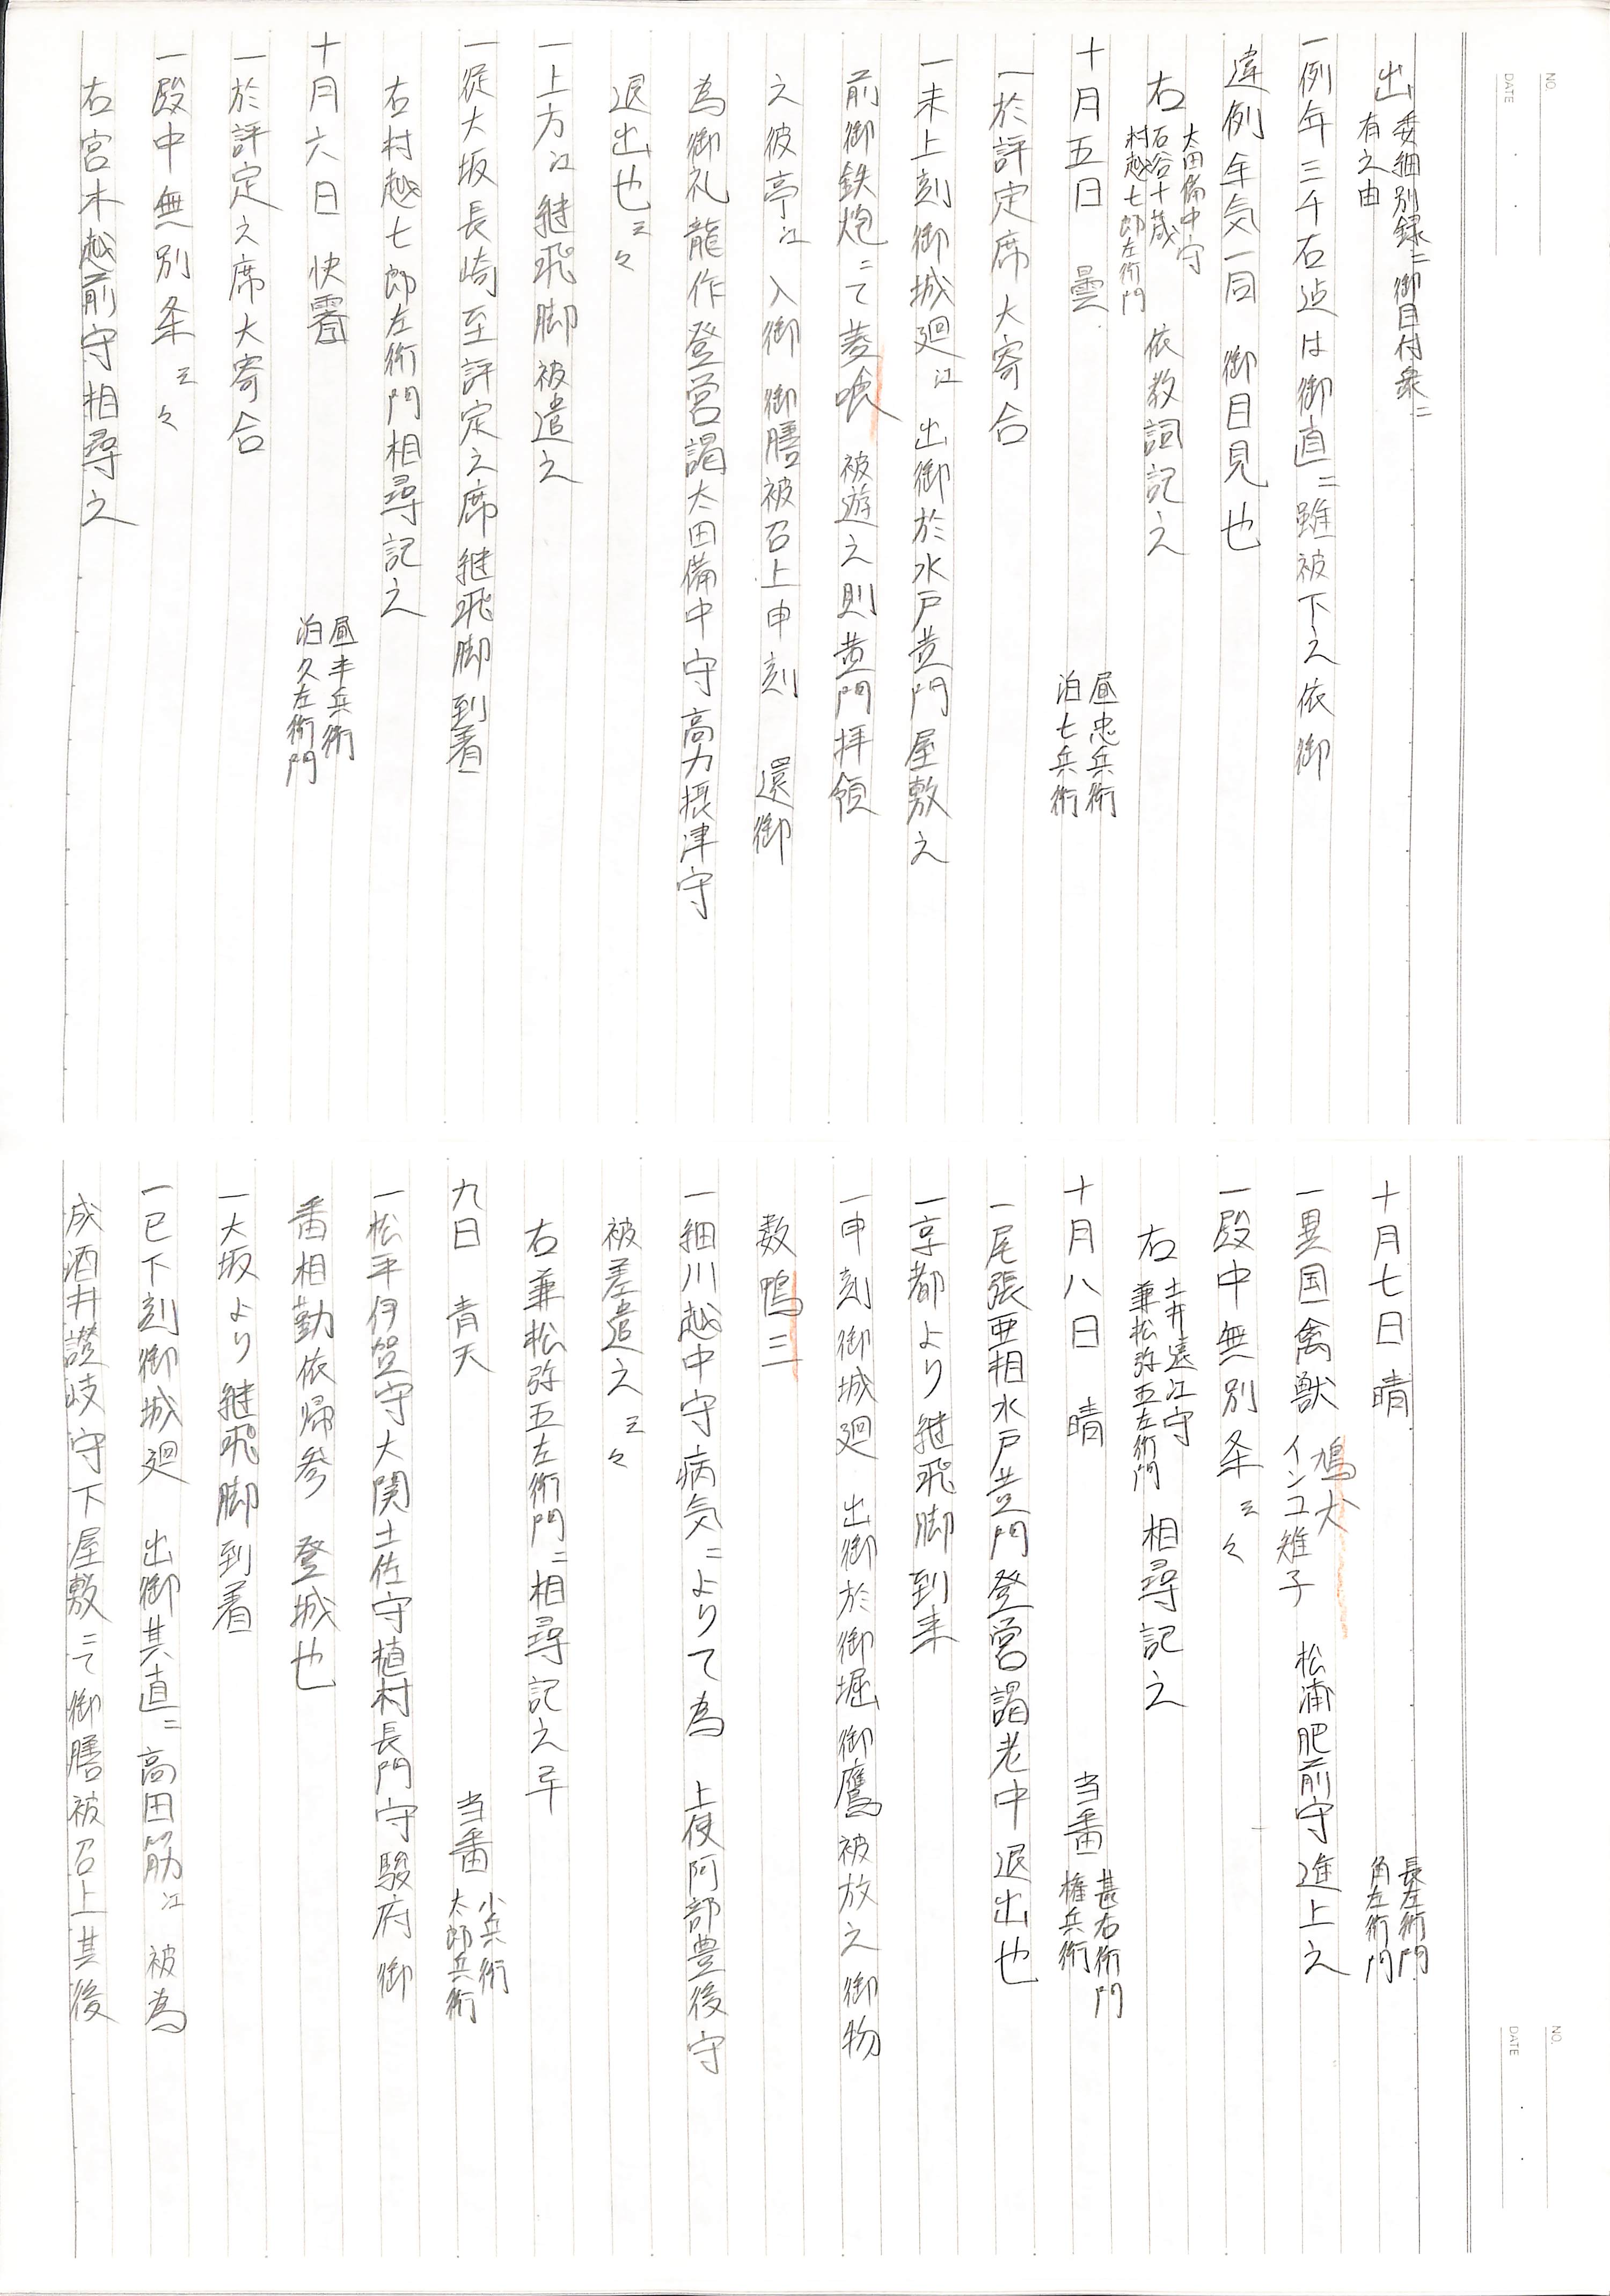 NO.
DATE
出 委細別録ニ御目付衆ニ
有之由
一例年三千石迠は御直ニ雖被下之依御
違例年気一同 御目見也
右 太田備中守
石谷十蔵
村越七郎左衛門 依教詞記之
十月五日 曇 昼忠兵衛
泊七兵衛
一於評定席大寄合
一未上刻御城廻江 出御於水戸黄門屋敷之
前御鉄炮ニて菱喰 被遊之則黄門拝領
之彼亭江 入御 御膳被召上申刻 還御
為御礼龍作登営謁太田備中守高力摂津守
退出也云々
一上方江継飛脚被遣之
一従大坂長崎至評定之席継飛脚到着
右村越七郎左衛門相尋記之
十月六日 快霽 昼半兵衛
泊久左衛門
一於評定之席大寄合
一殿中無別条云々
右宮木越前守相尋之
NO.
DATE
十月七日 晴 長左衛門
角左衛門
一異国禽獣 鳩犬
インコ雉子 松浦肥前守進上之
一殿中無別条云々
右 土井遠江守
兼松弥五左衛門 相尋記之
十月八日 晴 当番 甚右衛門
権兵衛
一尾張亜相水戸黄門登営謁老中退出也
一京都より継飛脚到来
一申刻御城廻 出御於御堀御鷹被放之御物
数鴨三
一細川越中守病気ニよりて為 上使阿部豊後守
被差遣之云々
右兼松弥五左衛門ニ相尋記之
九日 青天 当番 小兵衛
太郎兵衛
一松平伊賀守大関土佐守植村長門守駿府御
番相勤依帰参 登城也
一大坂より継飛脚到着
一巳下刻御城廻 出御其直ニ高田筋江 被為
成酒井讃岐守下屋敷ニて御膳被召上其後